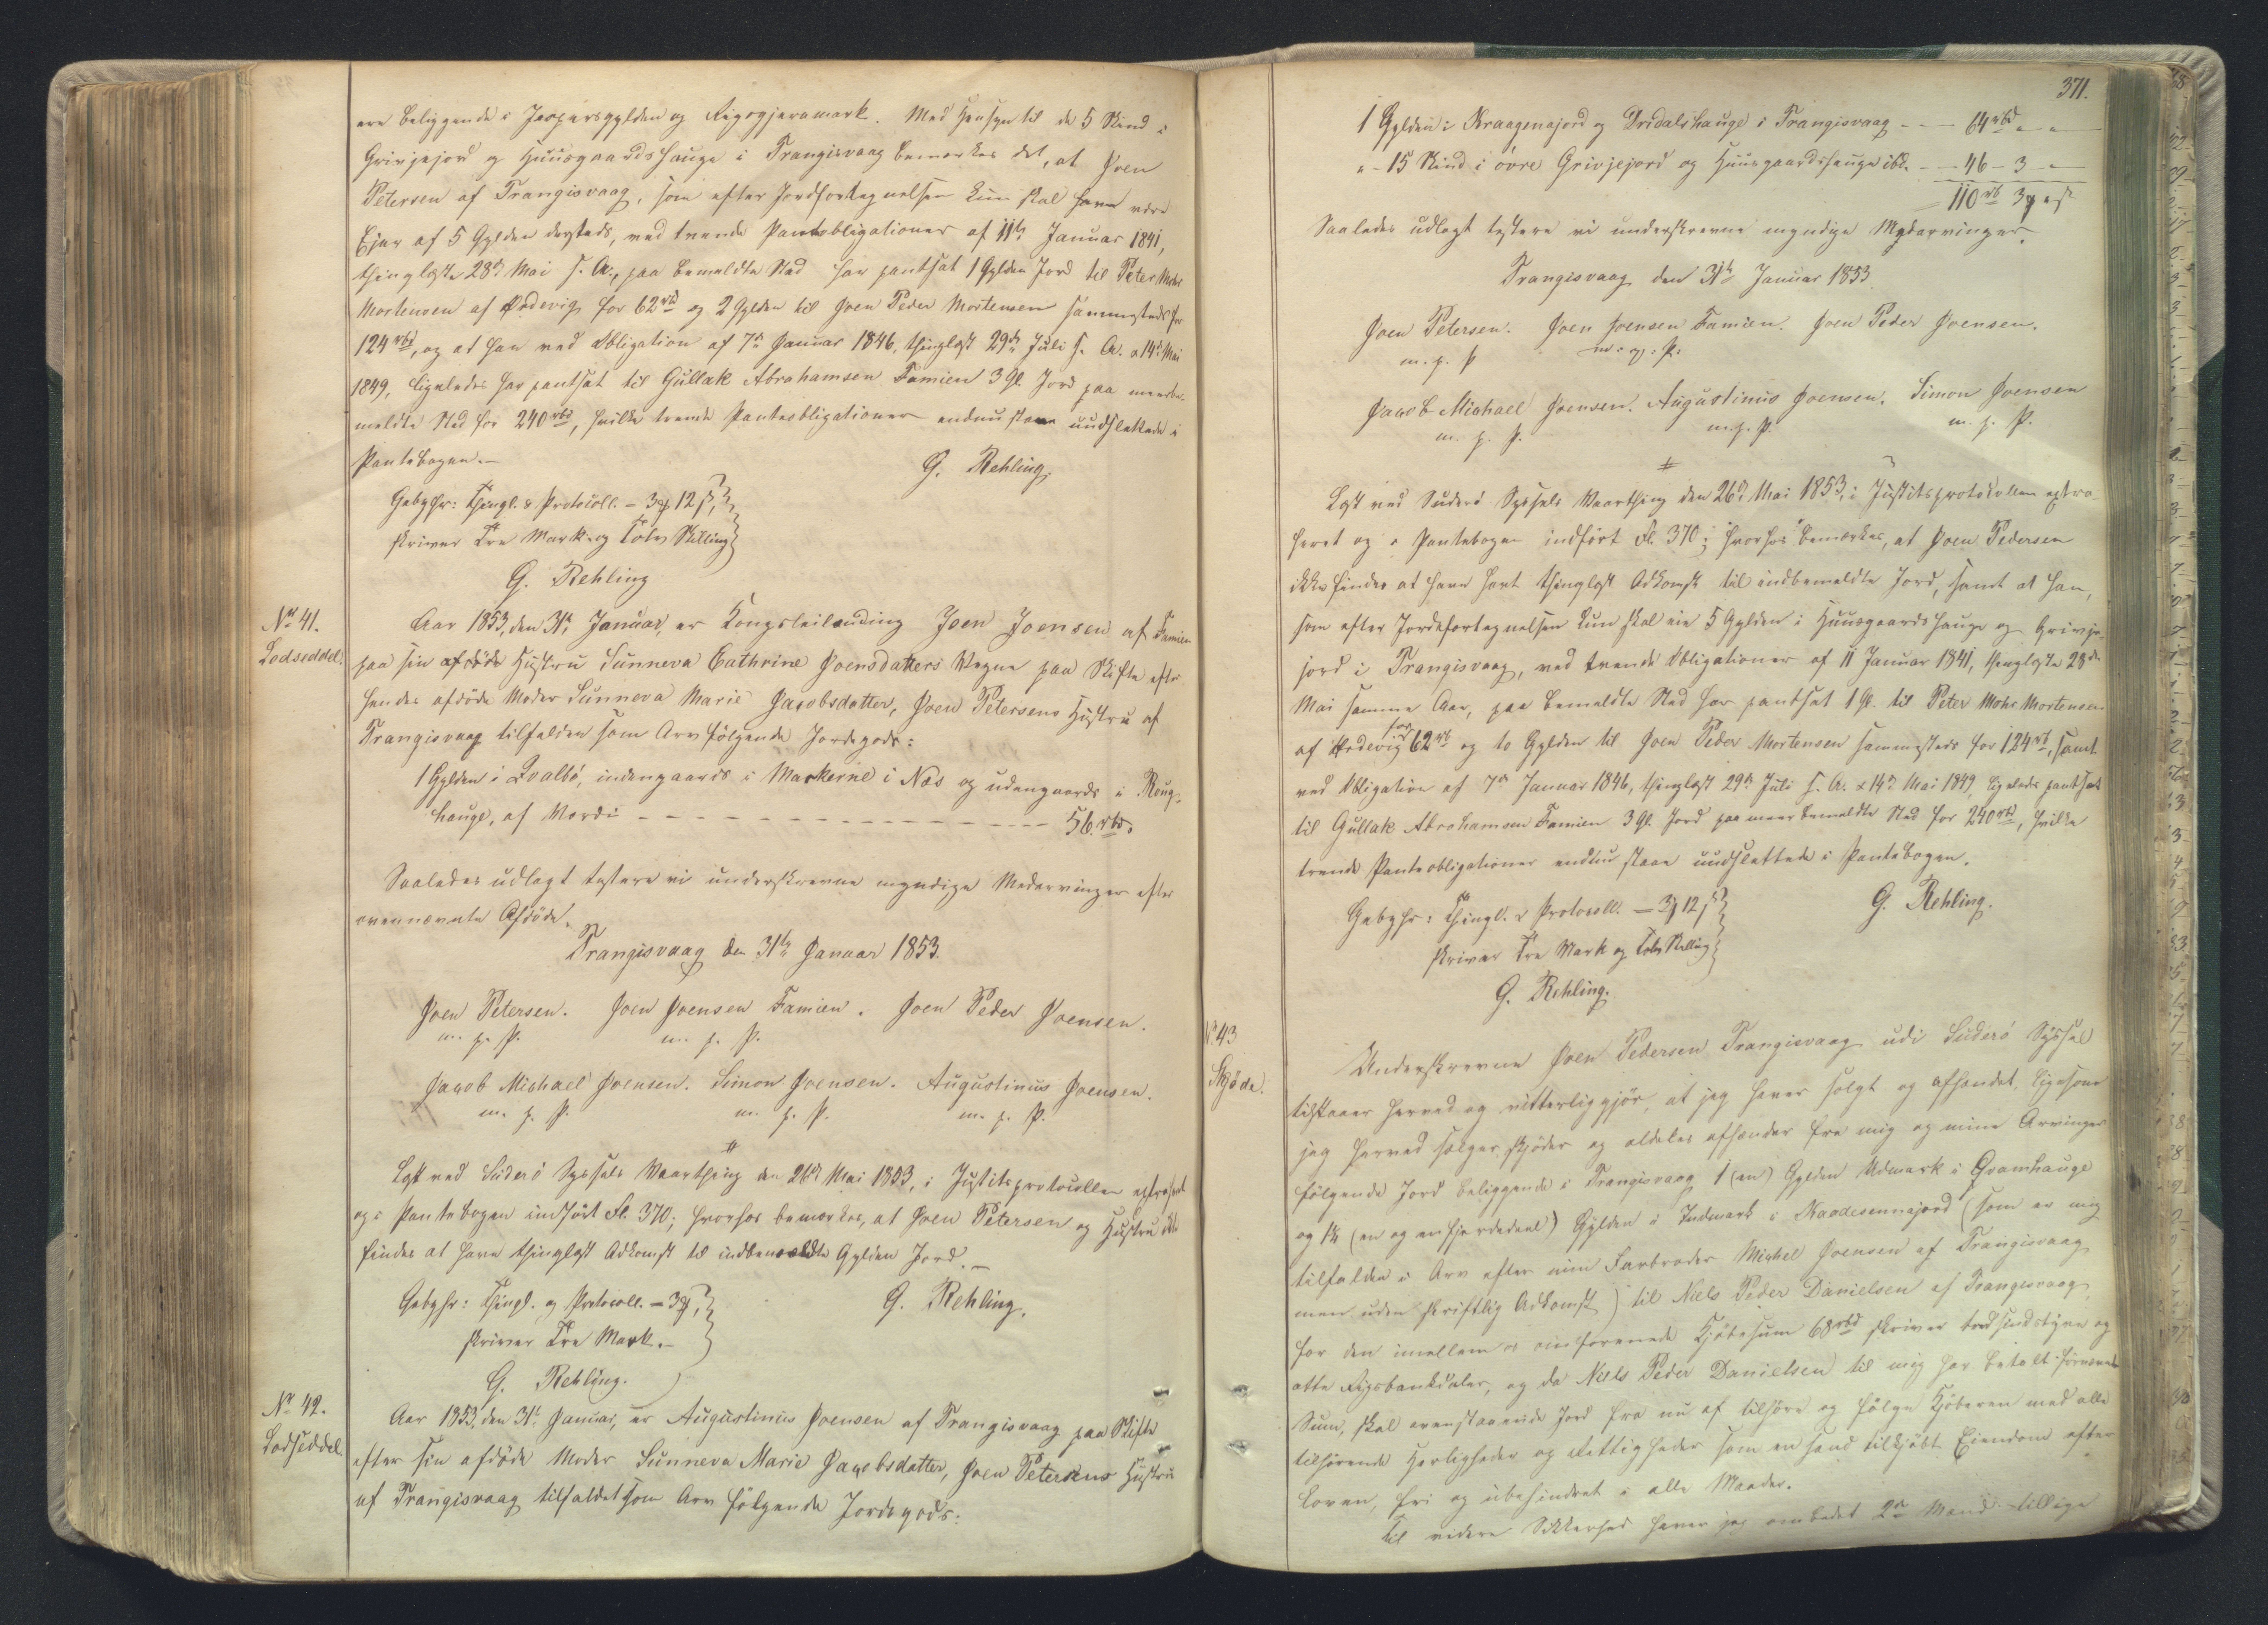 ere beliggende i Jespersgylden og Rigsgjeramark. Med Hensyn til de 5 Skind i
Grivjejord og Huusgaardshauge i Trangisvaag bemærkes det, at Joen
Petersen af Trangisvaag, som efter Jordfortegnelsen kun skal have være
Ejer af 5 Gylden dersteds, ved tvende Panteobligationer af 11te Januar 1841,
thinglæste 28de Mai s. A., paa bemeldte Sted har pantsat 1 Gylden Jord til Peter Mohr
Mortensen af Ördevig for 62 rbd og 2 Gylden til Joen Peder Mortensen sammesteds for
124 rbd, og at han ved Obligation af 7de Januar 1846, thinglæst 29de Juli s. A. & 14de Mai
1849, ligeledes har pantsat til Gullak Abrahamsen Famien 3 Gl. Jord paa meerbe-
meldte Sted for 240 rbd, hvilke trende Panteobligationer endnu staae uudslettede i
Pantebogen.–
G. Rehling.
Gebyhr: Thingl. & Protocoll. – 3 # 12 ß,
skriver Tre Mark og Tolv Skilling
G. Rehling
No 41.
Lodseddel.
Aar 1853, den 31te Januar, er Kongsleilænding Joen Joensen af Famien
paa sin afdöde Hustru Sunneva Cathrine Joensdatters Vegne paa Skifte efter
hendes afdöde Moder Sunneva Marie Jacobsdatter, Joen Petersens Hustru af
Trangisvaag tilfalden som Arv fölgende Jordegods:
1 Gylden i Qvalbö, indengaards i Markerne i Næs og udengaards i Röug-
hauge, af Værdi – – – – – – 56 rbd.
Saaledes udlagt testere vi underskrevne myndige Medarvinger efter
ovennævnte Afdöde.
Trangisvaag den 31te Januar 1853.
Joen Petersen. Joen Joensen Famien. Joen Peder Joensen.
m. p. P. m. p. P.
Jacob Michael Joensen. Simon Joensen. Augustinus Joensen.
m. p. P. m. p. P. m. p. P.
Læst ved Suderö Syssels Vaarthing den 26de Mai 1853, i Justitsprotocollen extraheret
og i Pantebogen indfört Fl. 370; hvorhos bemærkes, at Joen Petersen og Hustru ikke
findes at have thinglæst Adkomst til indbemeldte Gylden Jord.–
Gebyhr: Thingl. og Protocoll. – 3 #,
skriver Tre Mark.–
G. Rehling.
G. Rehling.
No 42.
Lodseddel
Aar 1853, den 31te Januar, er Augustinus Joensen af Trangisvaag paa Skifte
efter sin afdöde Moder Sunneva Marie Jacobsdatter, Joen Petersens Hustru
af Trangisvaag tilfaldet som Arv fölgende Jordegods:
371.
1 Gylden i Kraagenajord og Dridalshauge i Trangisvaag – – 64 rbd „ „
„ – 15 Skind i övre Grivjejord og Huusgaardshauge ibd. – – 46 – 3 „
110 rb 3 # „ ß
Saaledes udlagt testere vi underskrevne myndige Medarvinger.
Trangisvaag den 31te Januar 1853
Joen Petersen. Joen Joensen Famien. Joen Peder Joensen.
m. p. P m. p. P.
Jacob Michael Joensen. Augustinus Joensen. Simon Joensen
m. p. P. m. p. P. m. p. P.
Læst ved Suderö Syssels Vaarthing den 26de Mai 1853, i Justitsprotokollen extra-
heret og i Pantebogen indfört Fl. 370; hvorhos bemærkes, at Joen Pedersen
ikke findes at have havt thinglæst Adkomst til indbemeldte Jord, samt at han,
som efter Jordefortegnelsen kun skal eie 5 Gylden i Huusgaardshauge og Grivje-
jord i Trangisvaag, ved tvende Obligationer af 11 Januar 1841, thinglæste 28de
Mai samme Aar, paa bemeldte Sted har pantsat 1 Gl. til Peter Mohr Mortensen
af Ördevig for 62 rb og to Gylden til Joen Peder Mortensen sammesteds for 124 rb, samt
ved Obligation af 7de Januar 1846, thinglæst 29de Juli s. A. & 14de Mai 1849, ligeledes pantsat
til Gullak Abrahamsen Famien 3 Gl. Jord paa meerbemeldte Sted for 240 rbd, hvilke
trende Panteobligationer endnu staae uudslettede i Pantebogen.
G. Rehling.
Gebyhr: Thingl. & Protocoll. – 3 # 12 ß
skriver Tre Mark og Tolv Skilling
G. Rehling.
No 43
Skjöde.
Underskrevne Joen Pedersen Trangisvaag udi Suderö Syssel
tilstaaer herved og vitterliggjör, at jeg haver solgt og afhændet, ligesom
jeg herved sælger, skjöder og aldeles afhænder fra mig og mine Arvinger
fölgende Jord beliggende i Trangisvaag 1 (en) Gylden Udmark i Qvamhauge
og 1¼ (en og enfjerdedeel) Gylden i Indmark i Kaadesennajord (som er mig
tilfalden i Arv efter min Farbroder Michel Joensen af Trangisvaag
men uden skriftlig Adkomst) til Niels Peder Danielsen af Trangisvaag,
for den imellem os omforenede Kjöbesum 68 rbd skriver tredsindstyve og
otte Rigsbankdaler, og da Niels Peder Danielsen til mig har betalt fornævnte
Sum, skal ovenstaaende Jord fra nu af tilhöre og fölge Kjöberen med alle
tilhörende Herligheder og Rettigheder som en sand tilkjöbt Eiendom efter
Loven, fri og ubehindret i alle Maader.
Til videre Sikkerhed haver jeg ombedet 2de Mænd tillige